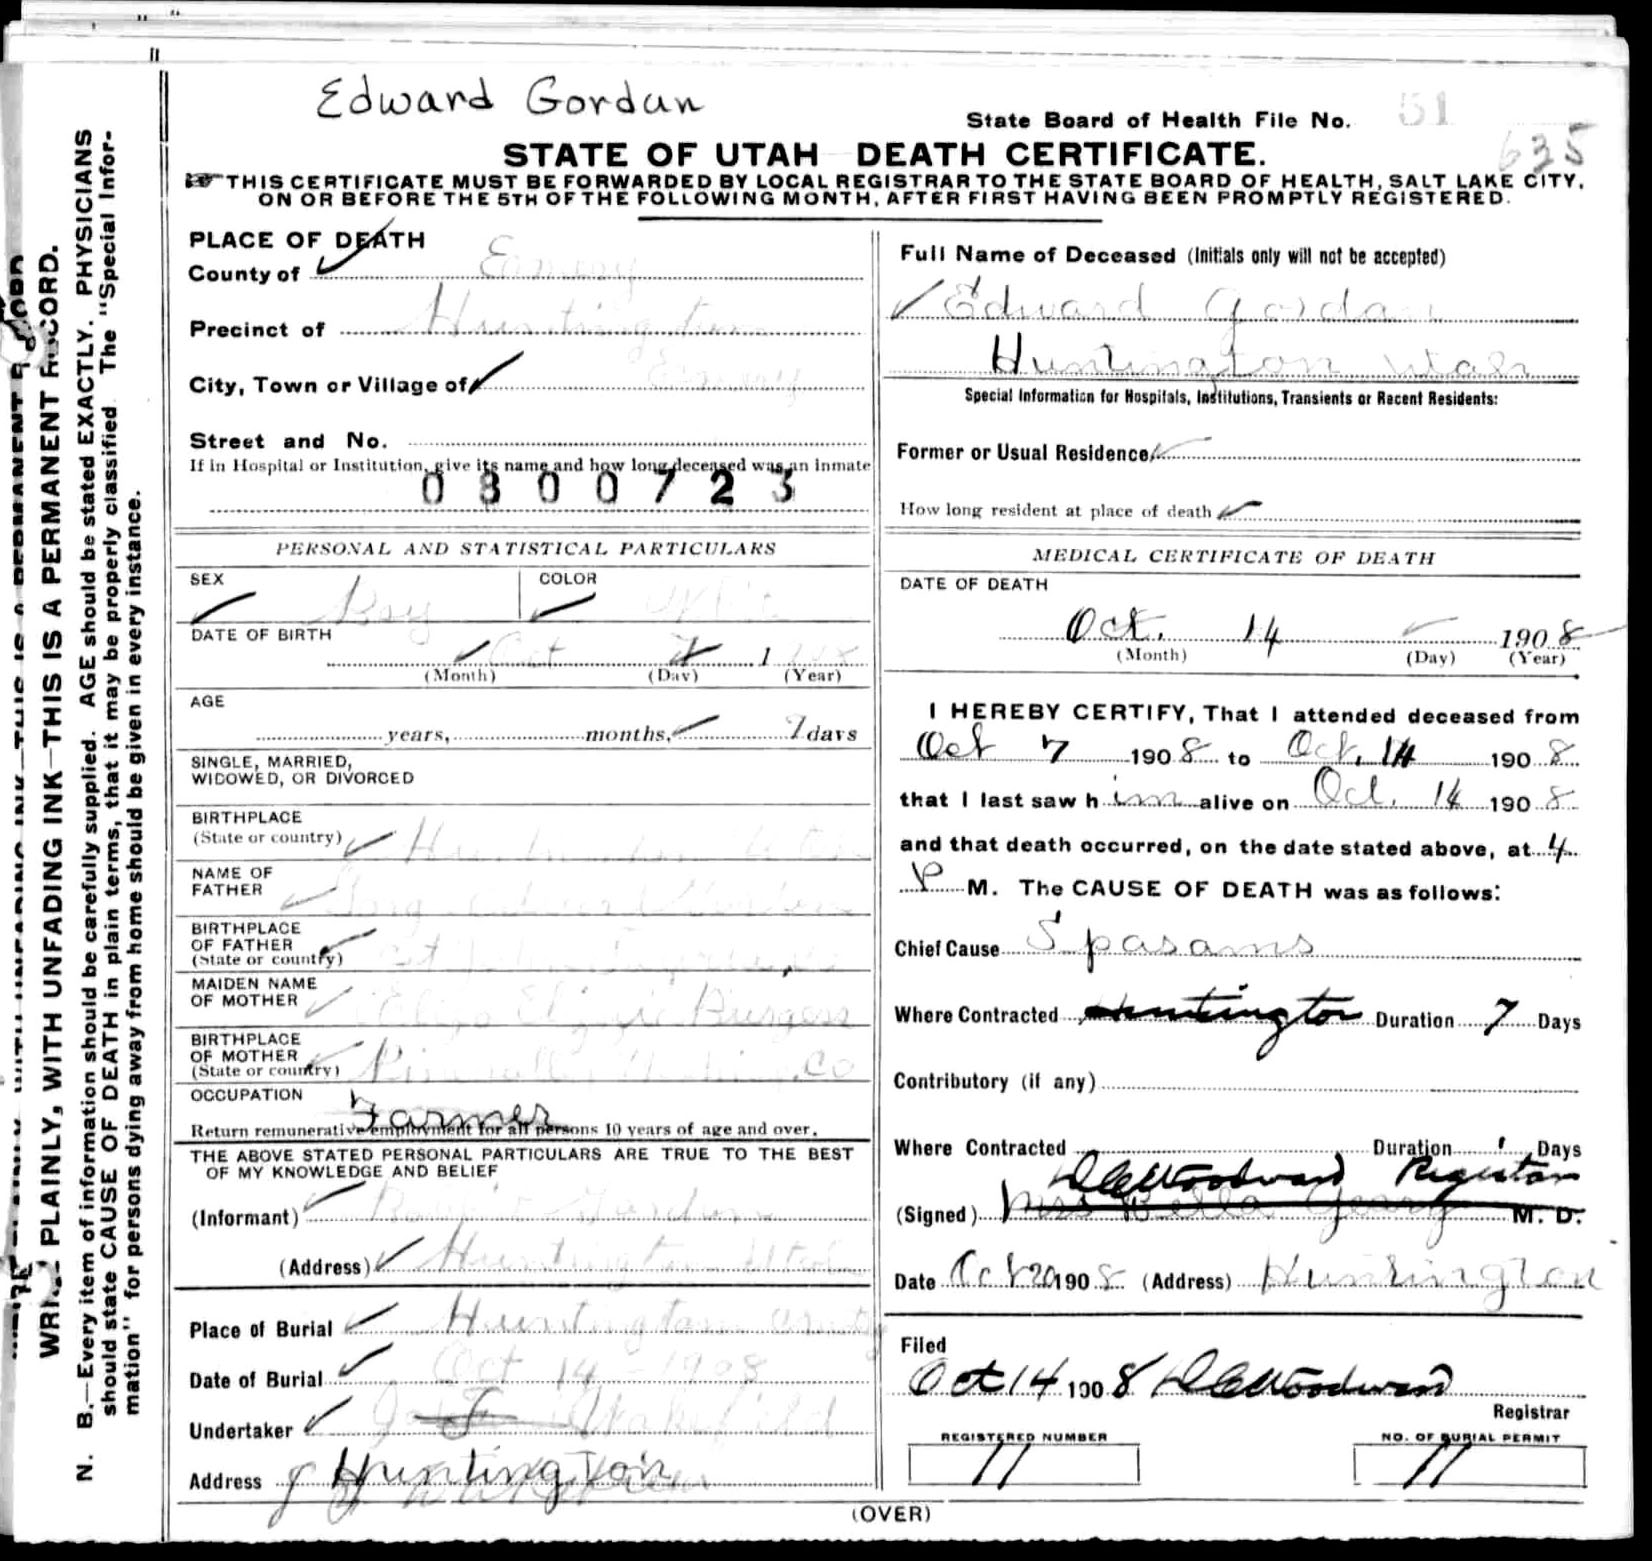 Edward Gordan
State Board of Health File No. 51
635
STATE OF UTAH DEATH CERTIFICATE.
THIS CERTIFICATE MUST BE FORWARDED BY LOCAL REGISTRAR TO THE STATE BOARD OF HEALTH, SALT LAKE CITY,
ON OR BEFORE THE 5TH OF THE FOLLOWING MONTH, AFTER FIRST HAVING BEEN PROMPTLY REGISTERED.
WRITE PLAINLY, WITH UNFADING INK—THIS IS A PERMANENT RECORD.
N. B.—Every item of information should be carefully supplied. AGE should be stated EXACTLY. PHYSICIANS
should state CAUSE OF DEATH in plain terms, that it may be properly classified. The "Special Infor-
mation" for persons dying away from home should be given in every instance.
PLACE OF DEATH
County of Emery
Precinct of Huntington
City, Town or Village of Emery
Street and No.
If in Hospital or Institution, give its name and how long deceased was an inmate
0300723
PERSONAL AND STATISTICAL PARTICULARS
SEX Boy COLOR
DATE OF BIRTH
Oct 7 1908
(Month) (Day) (Year)
AGE
years, months, 7 days
SINGLE, MARRIED,
WIDOWED, OR DIVORCED
BIRTHPLACE
(State or country) Huntington Utah
NAME OF
FATHER
BIRTHPLACE
OF FATHER
(State or country)
MAIDEN NAME
OF MOTHER Burgess
BIRTHPLACE
OF MOTHER
(State or country) Co
OCCUPATION Farmer
Return remunerative employment for all persons 10 years of age and over.
THE ABOVE STATED PERSONAL PARTICULARS ARE TRUE TO THE BEST
OF MY KNOWLEDGE AND BELIEF
(Informant)
(Address) Huntington Utah
Place of Burial Huntington
Date of Burial Oct 14 - 1908
Undertaker Wakefield
Address Huntington
Full Name of Deceased (Initials only will not be accepted)
Edward Gordan
Huntington Utah
Special Information for Hospitals, Institutions, Transients or Recent Residents:
Former or Usual Residence
How long resident at place of death
MEDICAL CERTIFICATE OF DEATH
DATE OF DEATH
Oct. 14 1908
(Month) (Day) (Year)
I HEREBY CERTIFY, That I attended deceased from
Oct 7 1908 to Oct. 14 1908
that I last saw him alive on Oct. 14 1908
and that death occurred, on the date stated above, at 4
P M. The CAUSE OF DEATH was as follows:
Chief Cause Spasams
Where Contracted Huntington Duration 7 Days
Contributory (if any)
Where Contracted Duration Days
Woodward Registrar
(Signed) Mrs Bella Geary M. D.
Date Oct 20 1908 (Address) Huntington
Filed
Oct 14 1908 Woodward
Registrar
REGISTERED NUMBER
11
NO. OF BURIAL PERMIT
11
(OVER)